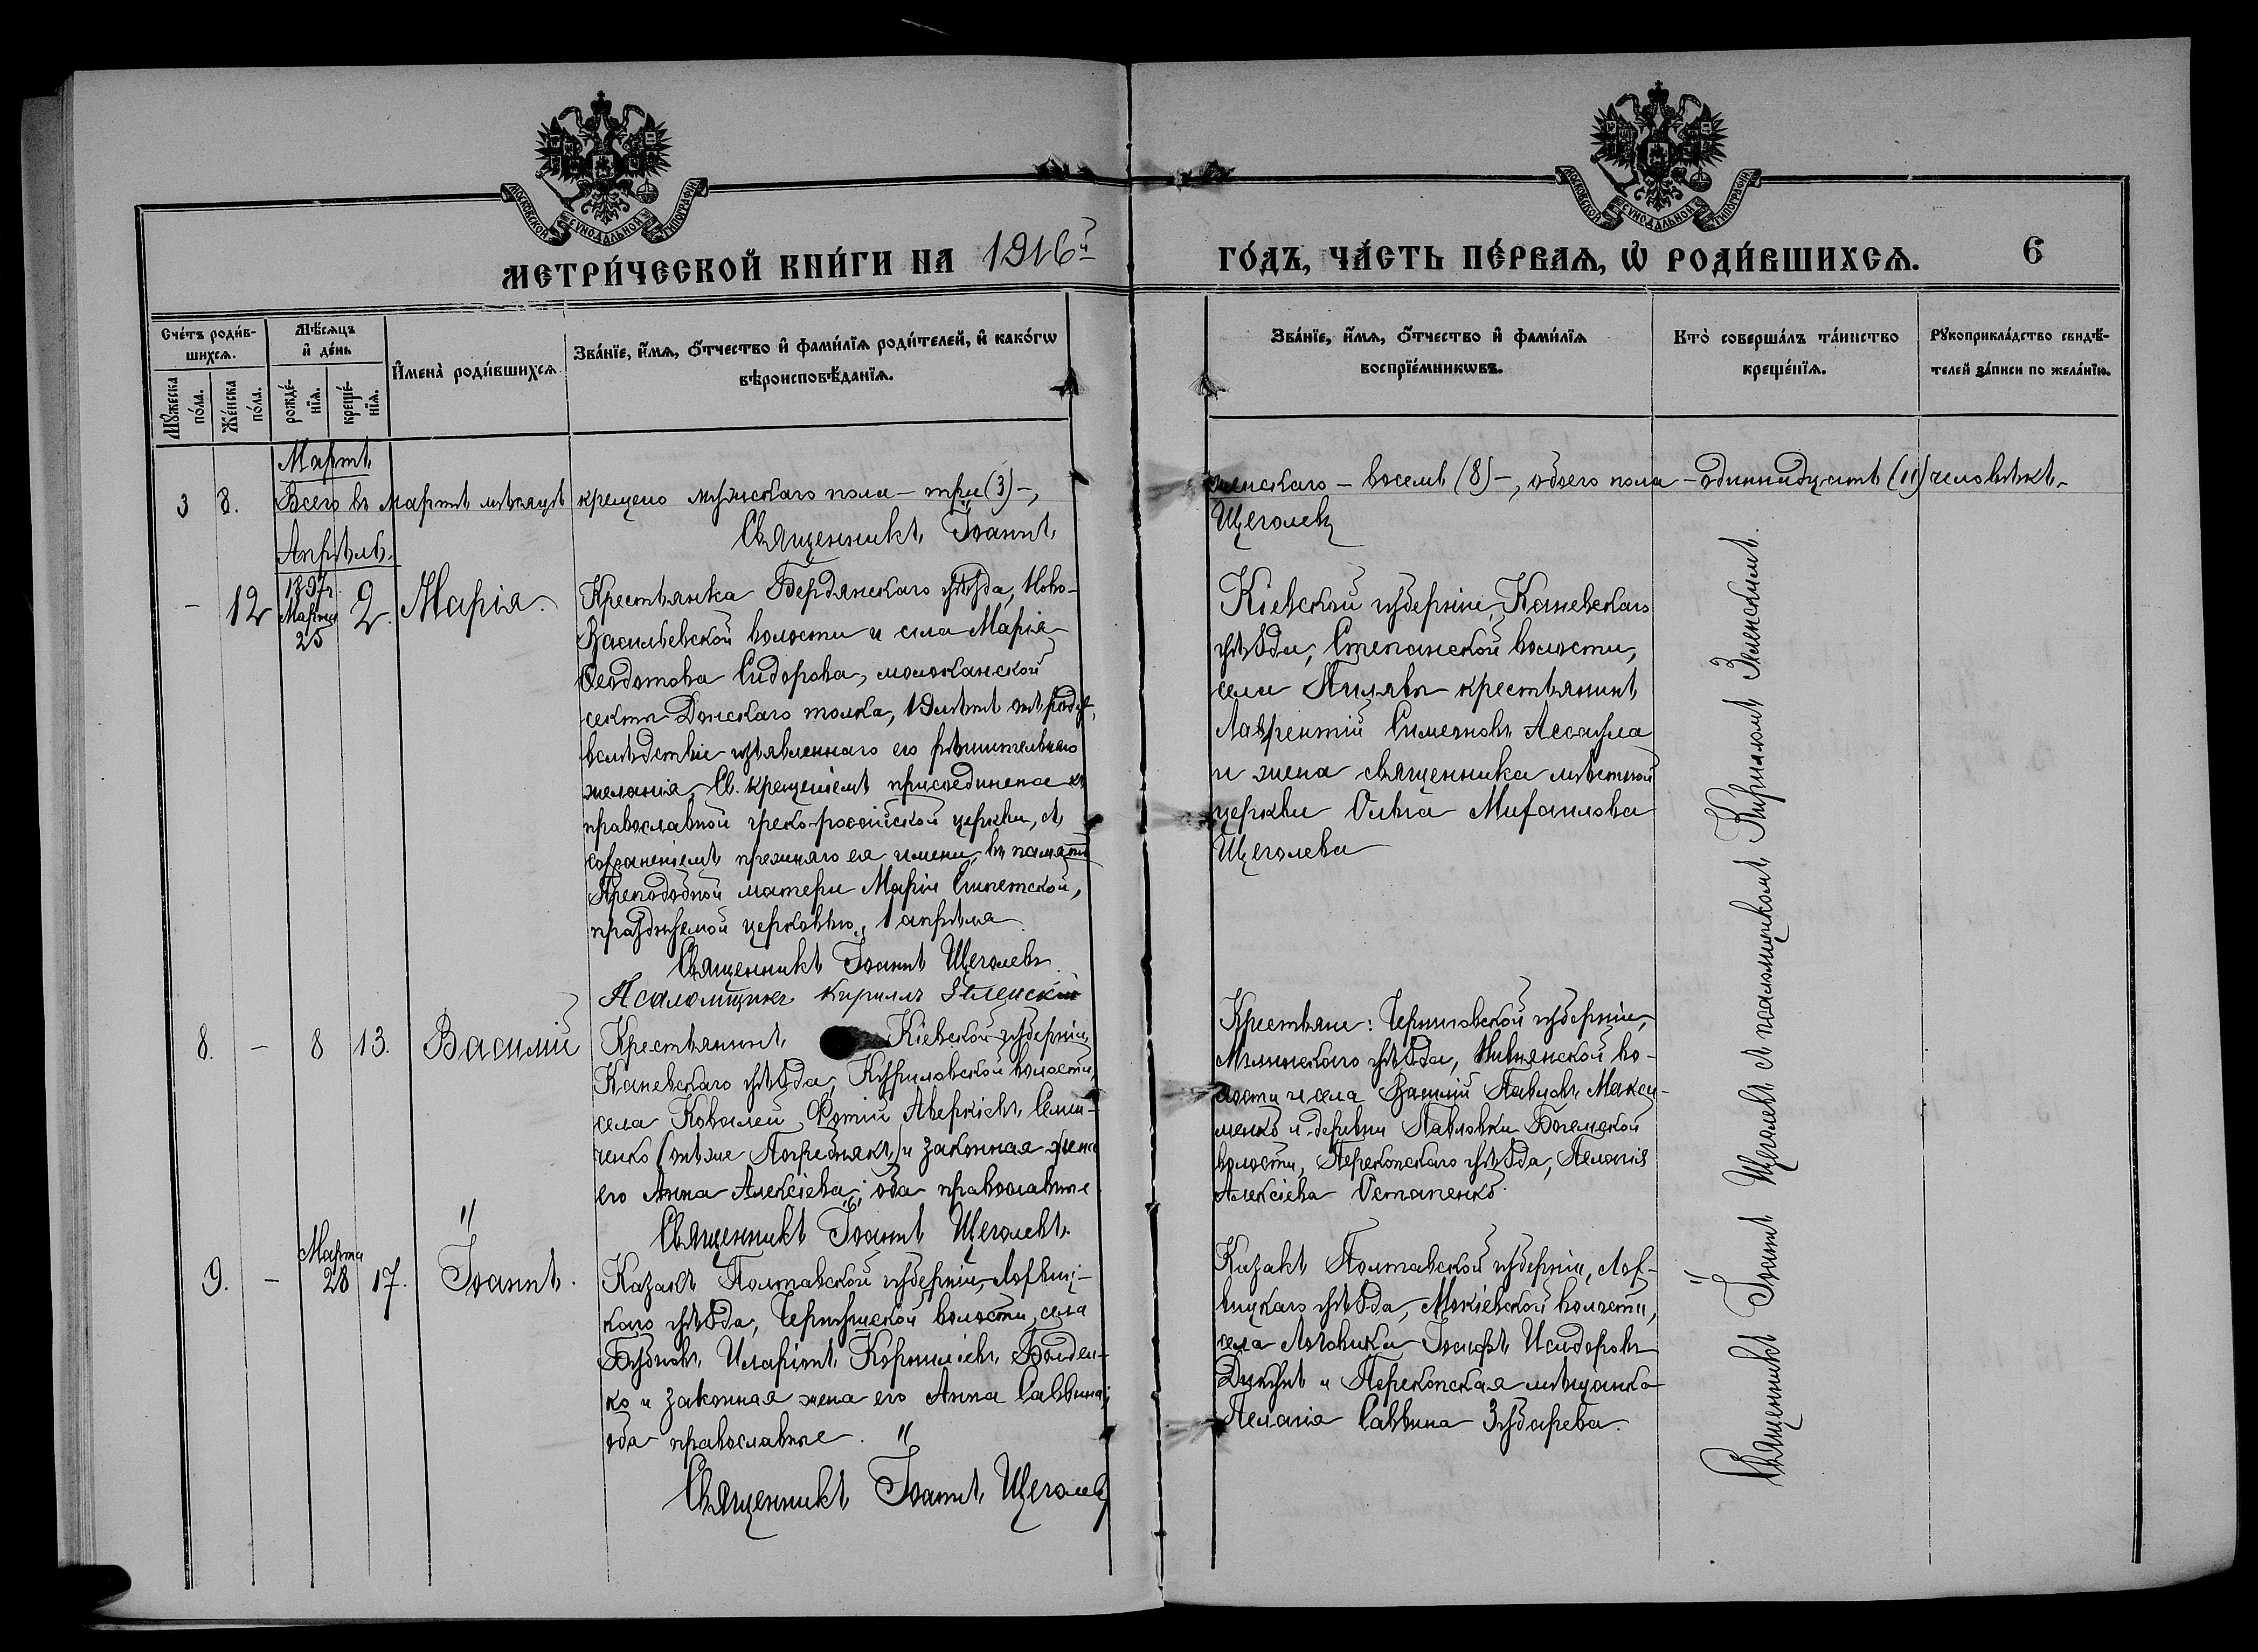 МОСКОВСКОЙ СУНОДАЛЬНОЙ ТИПОГРАФІИ
МОСКОВСКОЙ СУНОДАЛЬНОЙ ТИПОГРАФІИ
МЕТРИ́ЧЕСКОЙ КНИ́ГИ НА 1916й
ГО́ДЪ, ЧА́СТЬ ПЕ́РВАѦ, Ѡ РОДИ́ВШИХСѦ.
6
Сче́тъ роди́в-
шихсѧ.
Мꙋжеска по́ла.
Же́нска по́ла.
Мѣ́сѧцъ
и҆ де́нь
рожде́-
нїѧ.
креще́-
нїѧ.
И҆мена̀ роди́вшихсѧ
Зва́нїе, и҆́мѧ, ѻ҆́тчество и҆ фами́лїѧ роди́телей, и҆ како́гѡ
вѣроисповѣ́данїѧ.
Зва́нїе, и҆́мѧ, ѻ҆́тчество и҆ фами́лїѧ
воспрїе́мникѡвъ.
Кто̀ соверша́лъ та́инство
креще́нїѧ.
Рꙋкоприкла́дство свидѣ́-
телей за́писи по жела́нїю.
Мартъ
3 8. Всего въ Мартѣ мѣсяцѣ крещено мужскаго пола – три (3) –,
женскаго – восемь (8) –, обоего пола – одиннадцать (11) человѣкъ.
Священникъ Іоаннъ
Щеголевъ
Апрѣль.
– 12 1897г. Марта 25 2. Марія.
Крестьянка Бердянскаго уѣзда, Ново-
Васильевской волости и села Марія
Ѳеодотова Сидорова, молоканской
секты Донскаго толка, 19 лѣтъ отъ роду,
вслѣдствіе изъявленнаго ею рѣшительнаго
желанія, Св. крещеніемъ присоединена къ
православной греко-россійской церкви, съ
сохраненіемъ прежняго ея имени, въ память
Преподобной матери Маріи Египетской,
празднуемой церковью 1 апрѣля.
Священникъ Іоаннъ Щеголевъ
Псаломщикъ Кириллъ Зеленскій
Кіевской губерніи, Каневскаго
уѣзда, Степанской волости,
села Пилявы крестьянинъ
Лаврентій Симеоновъ Ассаула
и жена священника мѣстной
церкви Ольга Михаилова
Щеголева
8. – 8 13. Василій
Крестьянинъ Кіевской губерніи,
Каневскаго уѣзда, Куриловской волости,
села Ковалей Фотій Аверкіевъ Семи-
ченко (онъ же Погребнякъ) и законная жена
его Анна Алексіева; оба православные.
Священникъ Іоаннъ Щеголевъ.
Крестьяне: Черниговской губерніи,
Мглинскаго уѣзда, Нивнянской во-
лости и села Василій Павловъ Макси-
менко и деревни Павловки Богемской
волости, Перекопскаго уѣзда, Пелагія
Алексіева Остапенко.
9. – Марта 28 17. Іоаннъ.
Казакъ Полтавской губерніи, Лохвиц-
каго уѣзда, Чернухской волости, села
Бубновъ Иларіонъ Корниліевъ Болден-
ко и законная жена его Анна Саввина;
оба православные.
Священникъ Іоаннъ Щеголевъ
Казакъ Полтавской губерніи, Лох-
вицкаго уѣзда, Мокіевской волости,
села Луговики Іосифъ Исидоровъ
Дикунъ и Перекопская мѣщанка
Пелагія Саввина Зубарева.
Священникъ Іоаннъ Щеголевъ съ псаломщикомъ Кирилломъ Зеленскимъ.